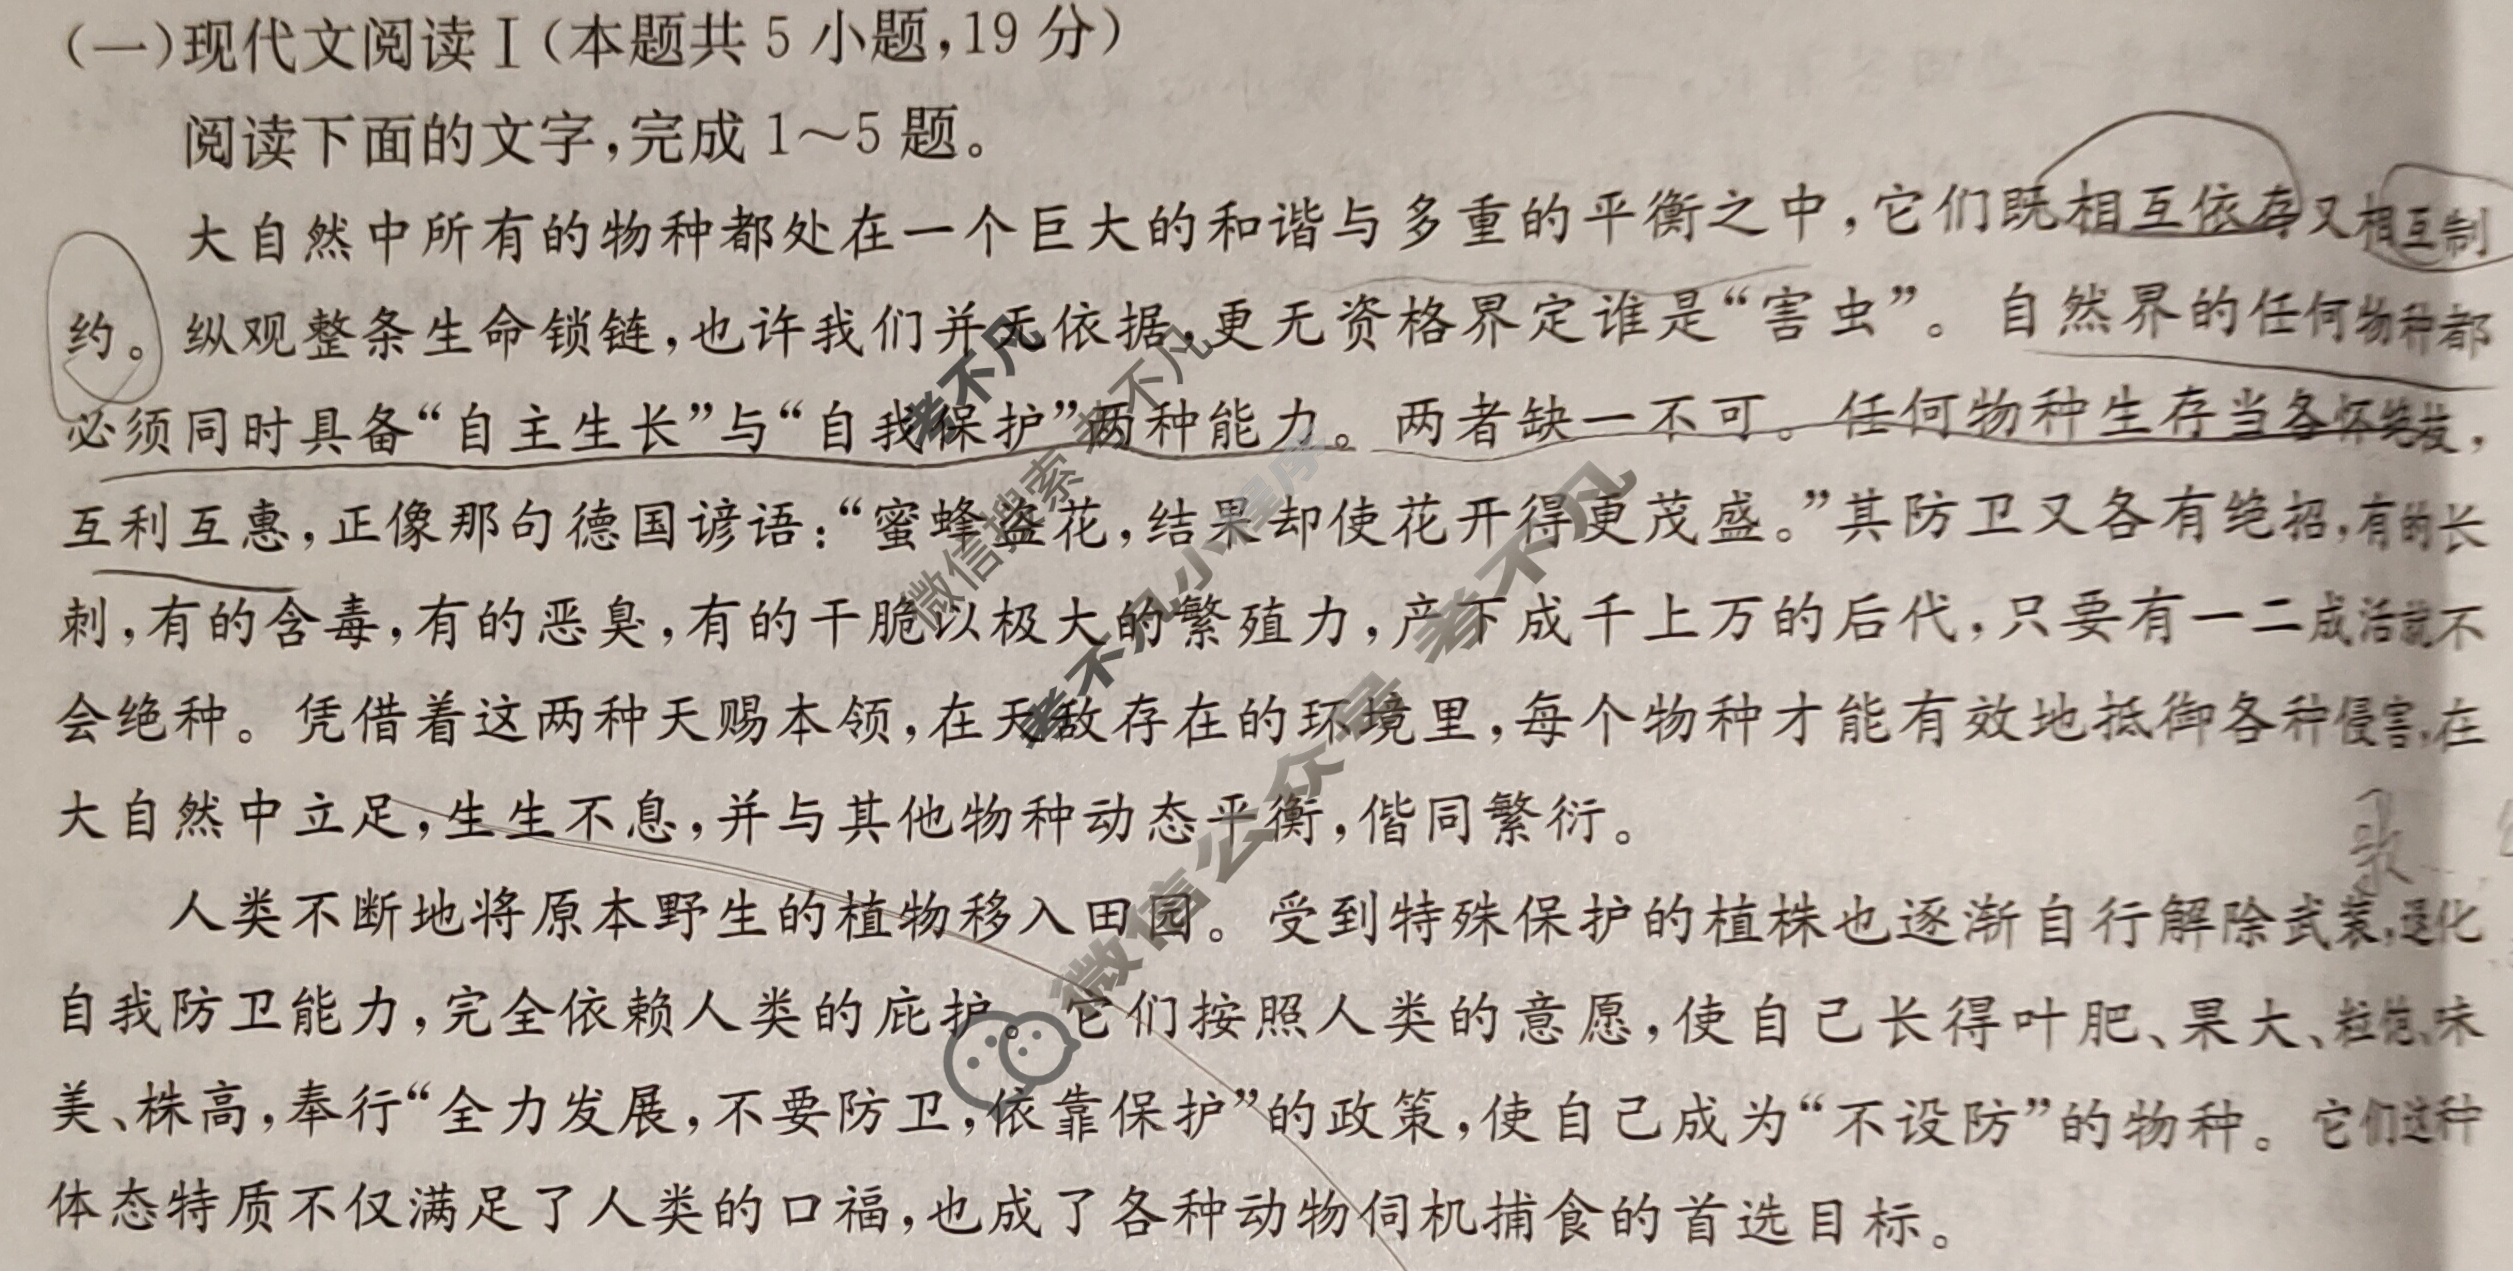 (一)现代文阅读Ⅰ(本题共5小题,19分)
阅读下面的文字,完成1~5题。
大自然中所有的物种都处在一个巨大的和谐与多重的平衡之中,它们既相互依存又相互制
约。纵观整条生命锁链,也许我们并无依据,更无资格界定谁是“害虫”。自然界的任何物种都
必须同时具备“自主生长”与“自我保护”两种能力。两者缺一不可。任何物种生存当各怀绝技,
互利互惠,正像那句德国谚语:“蜜蜂盗花,结果却使花开得更茂盛。”其防卫又各有绝招,有的长
刺,有的含毒,有的恶臭,有的干脆以极大的繁殖力,产下成千上万的后代,只要有一二成活就不
会绝种。凭借着这两种天赐本领,在天敌存在的环境里,每个物种才能有效地抵御各种侵害,在
大自然中立足,生生不息,并与其他物种动态平衡,偕同繁衍。
人类不断地将原本野生的植物移入田园。受到特殊保护的植株也逐渐自行解除武装,退化
自我防卫能力,完全依赖人类的庇护。它们按照人类的意愿,使自己长得叶肥、果大、粒饱、味
美、株高,奉行“全力发展,不要防卫,依靠保护”的政策,使自己成为“不设防”的物种。它们这种
体态特质不仅满足了人类的口福,也成了各种动物伺机捕食的首选目标。
考不凡
微信搜索 考不凡
考不凡小程序
微信公众号 考不凡